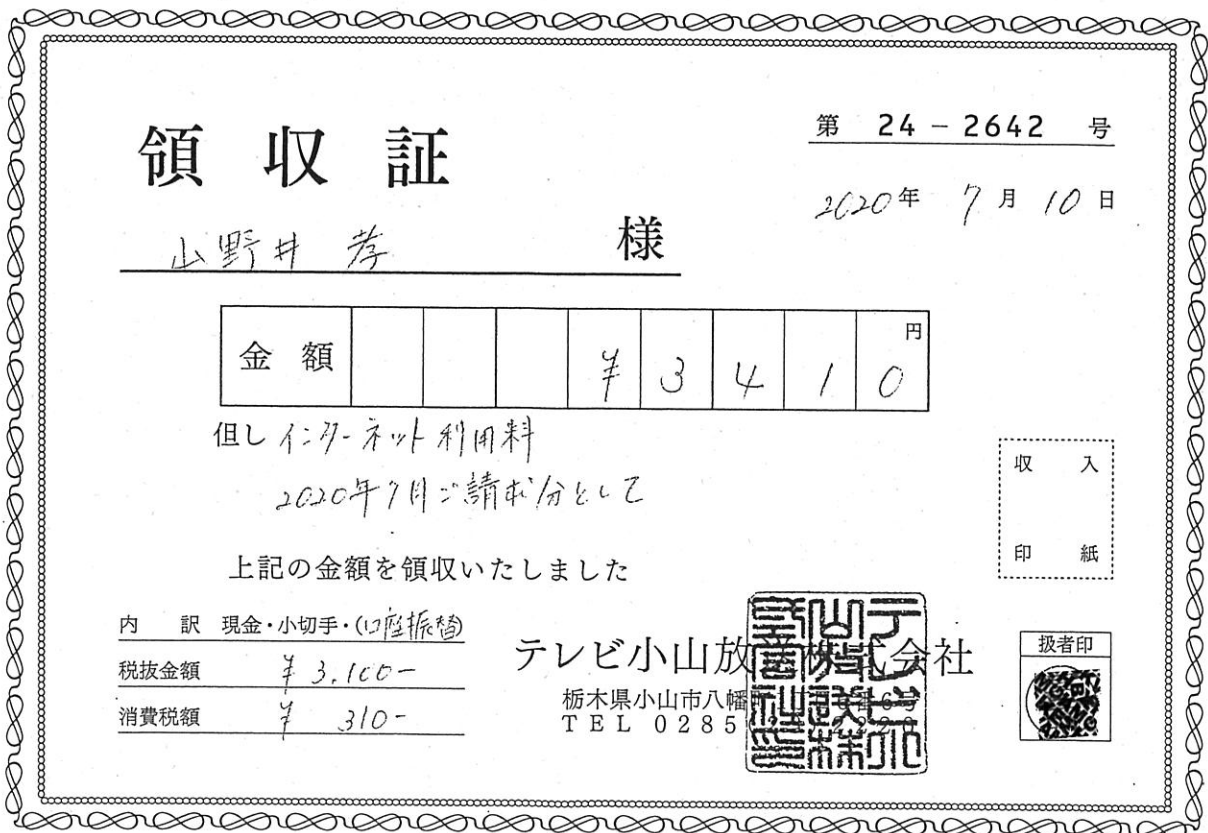 領収証
第 24-2642 号
2020年 7月 10日
山野井 孝 様
金額 ¥3410円
但し インターネット利用料
2020年7月ご請求分として
上記の金額を領収いたしました
収入
印紙
内訳 現金・小切手・(口座振替)
税抜金額 ¥3,100-
消費税額 ¥310-
テレビ小山放送株式会社
栃木県小山市八幡
TEL 0285
扱者印